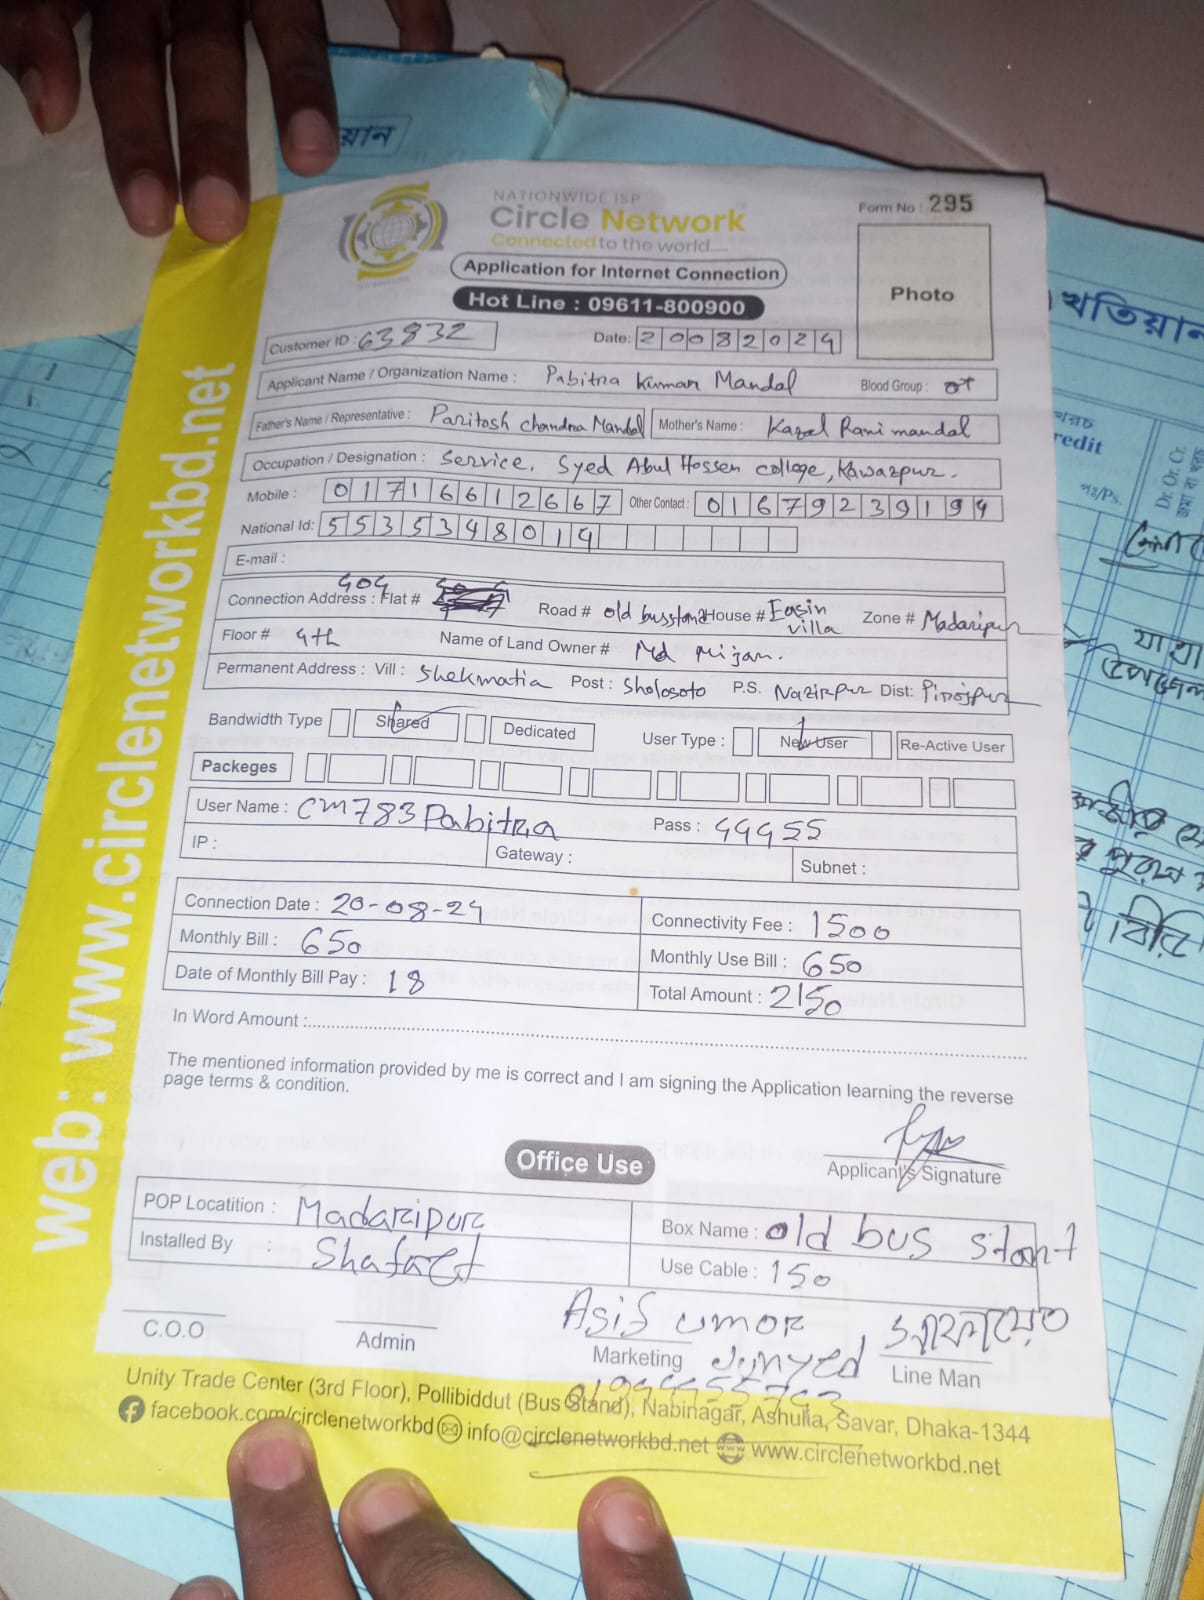 য়ান
NATIONWIDE ISP
Circle Network
Connected to the world....
Application for Internet Connection
Hot Line : 09611-800900
Form No : 295
Photo
খতিয়ান
Customer ID : 63832
Date: 20082024
Applicant Name / Organization Name : Pabitra Kumar Mandal Blood Group : O+
Father's Name / Representative : Paritosh chandra Mandal Mother's Name : Kazal Rani mandal
Occupation / Designation : Service, Syed Abul Hossen college, Kawazpur.
Mobile : 01716612667 Other Contact : 01679239194
National Id: 5535348014
E-mail :
Connection Address : Flat # 404 Road # old busstand House # Easin villa Zone # Madaripur
Floor # 4th Name of Land Owner # Md Mizan.
Permanent Address : Vill : Shekmatia Post : Sholosoto P.S. Nazirpur Dist: Pirojpur
Bandwidth Type Shared Dedicated User Type : New User Re-Active User
Packeges
User Name : CM783Pabitra Pass : 44455
IP : Gateway : Subnet :
Connection Date : 20-08-24 Connectivity Fee : 1500
Monthly Bill : 650 Monthly Use Bill : 650
Date of Monthly Bill Pay : 18 Total Amount : 2150
In Word Amount :
The mentioned information provided by me is correct and I am signing the Application learning the reverse
page terms & condition.
Applicant's Signature
Office Use
POP Locatition : Madaripur Box Name : old bus stant
Installed By : Shafaet Use Cable : 150
Asif umor
C.O.O Admin Marketing Junyed Line Man
Unity Trade Center (3rd Floor), Pollibiddut (Bus Stand), Nabinagar, Ashulia, Savar, Dhaka-1344
facebook.com/circlenetworkbd info@circlenetworkbd.net www.circlenetworkbd.net
web: www.circlenetworkbd.net
redit
পঃ/Ps.
Dr. Or. Cr.